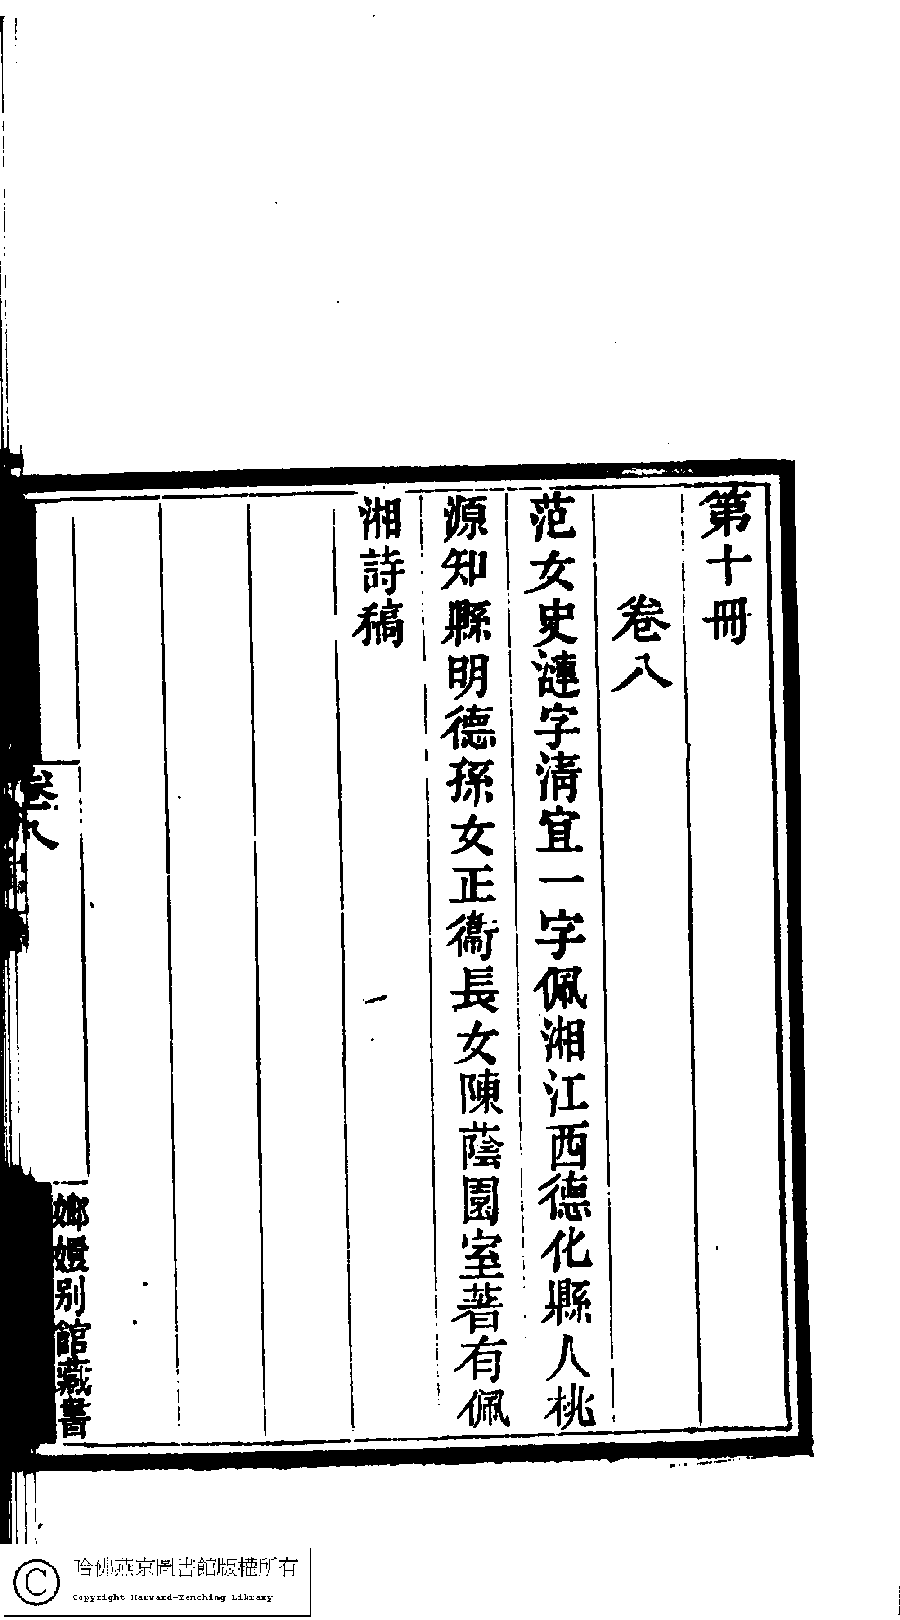 第十冊
卷八
范女史漣字淸宜一字佩湘江西德化縣人桃
源知縣明德孫女正衞長女陳蔭園室著有佩
湘詩稿
卷八
嫏嬛別館藏書
哈佛燕京圖書館版權所有
Copyright Harvard-Yenching Library